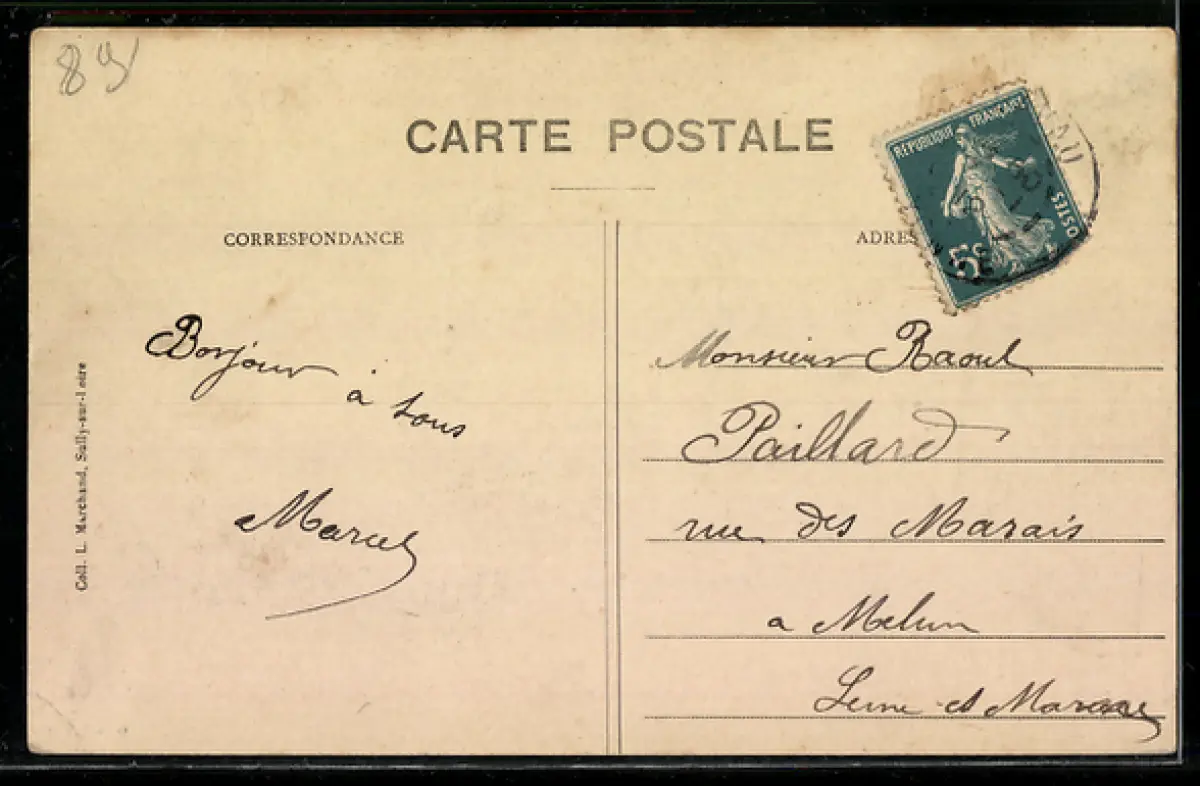 89
CARTE POSTALE
RÉPUBLIQUE FRANÇAISE
POSTES
5c
CORRESPONDANCE
ADRES
Bonjour à tous
Marcel
Monsieur Raoul
Paillard
rue des Marais
a Melun
Seine et Marne
Coll. L. Marchand, Sully-sur-Loire